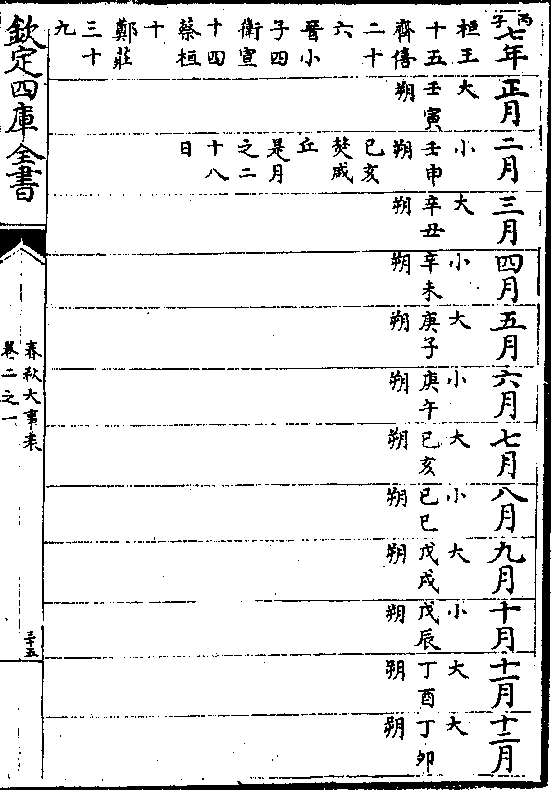 丙子
七年
桓王
十五
齊僖
二十
六
晉小
子四
衛宣
十四
蔡桓
十
鄭莊
三十
九
正月
大
壬寅
朔
二月
小
壬申
朔
己亥
焚咸
丘
是月
之二
十八
日
三月
大
辛丑
朔
四月
小
辛未
朔
五月
大
庚子
朔
六月
小
庚午
朔
七月
大
己亥
朔
八月
小
己巳
朔
九月
大
戊戌
朔
十月
小
戊辰
朔
十一月
大
丁酉
朔
十二月
大
丁卯
朔
欽定四庫全書
春秋大事表
卷二之一
三十五